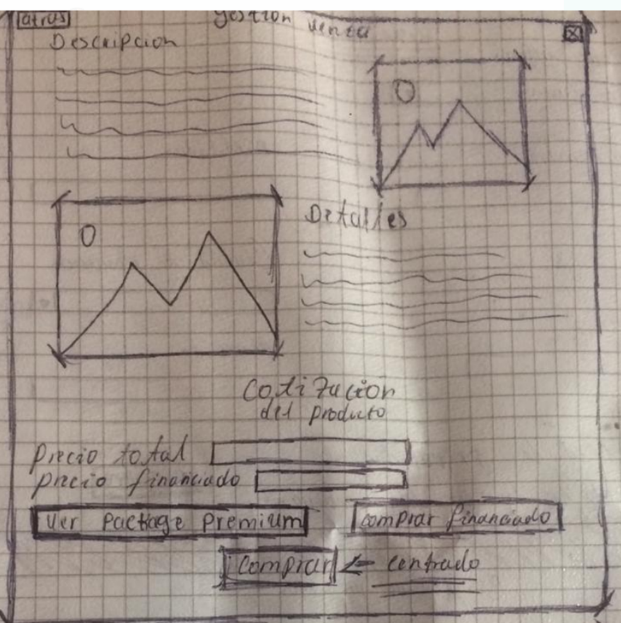 atras
gestion venta
Descripcion
Detalles
Cotizacion
del producto
precio total
precio financiado
Ver Package Premium
comprar financiado
Comprar ← centrado